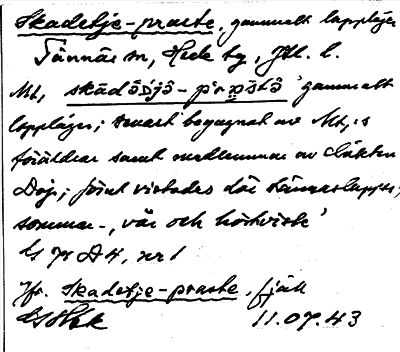 Skadetje-praste, gammalt lappläger
Tännäs sn, Hede tg, Jtl. l.
Mt, skādə̂Djə̂-prɒ̄stə̂ 'gammalt
lappläger; senast begagnat av Mt,:s
föräldrar samt medlemmar av släkten
Doj; förut vistades där Tännäslappar,
sommar-, vår och höstviste'
nr 1
Jfr. Skadetje-praste, fjäll
11.07.43